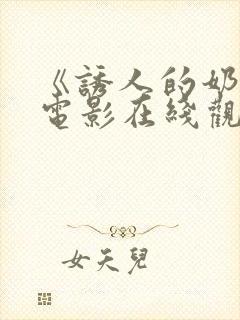 《誘人的奶
電影在綫觀
女天兒